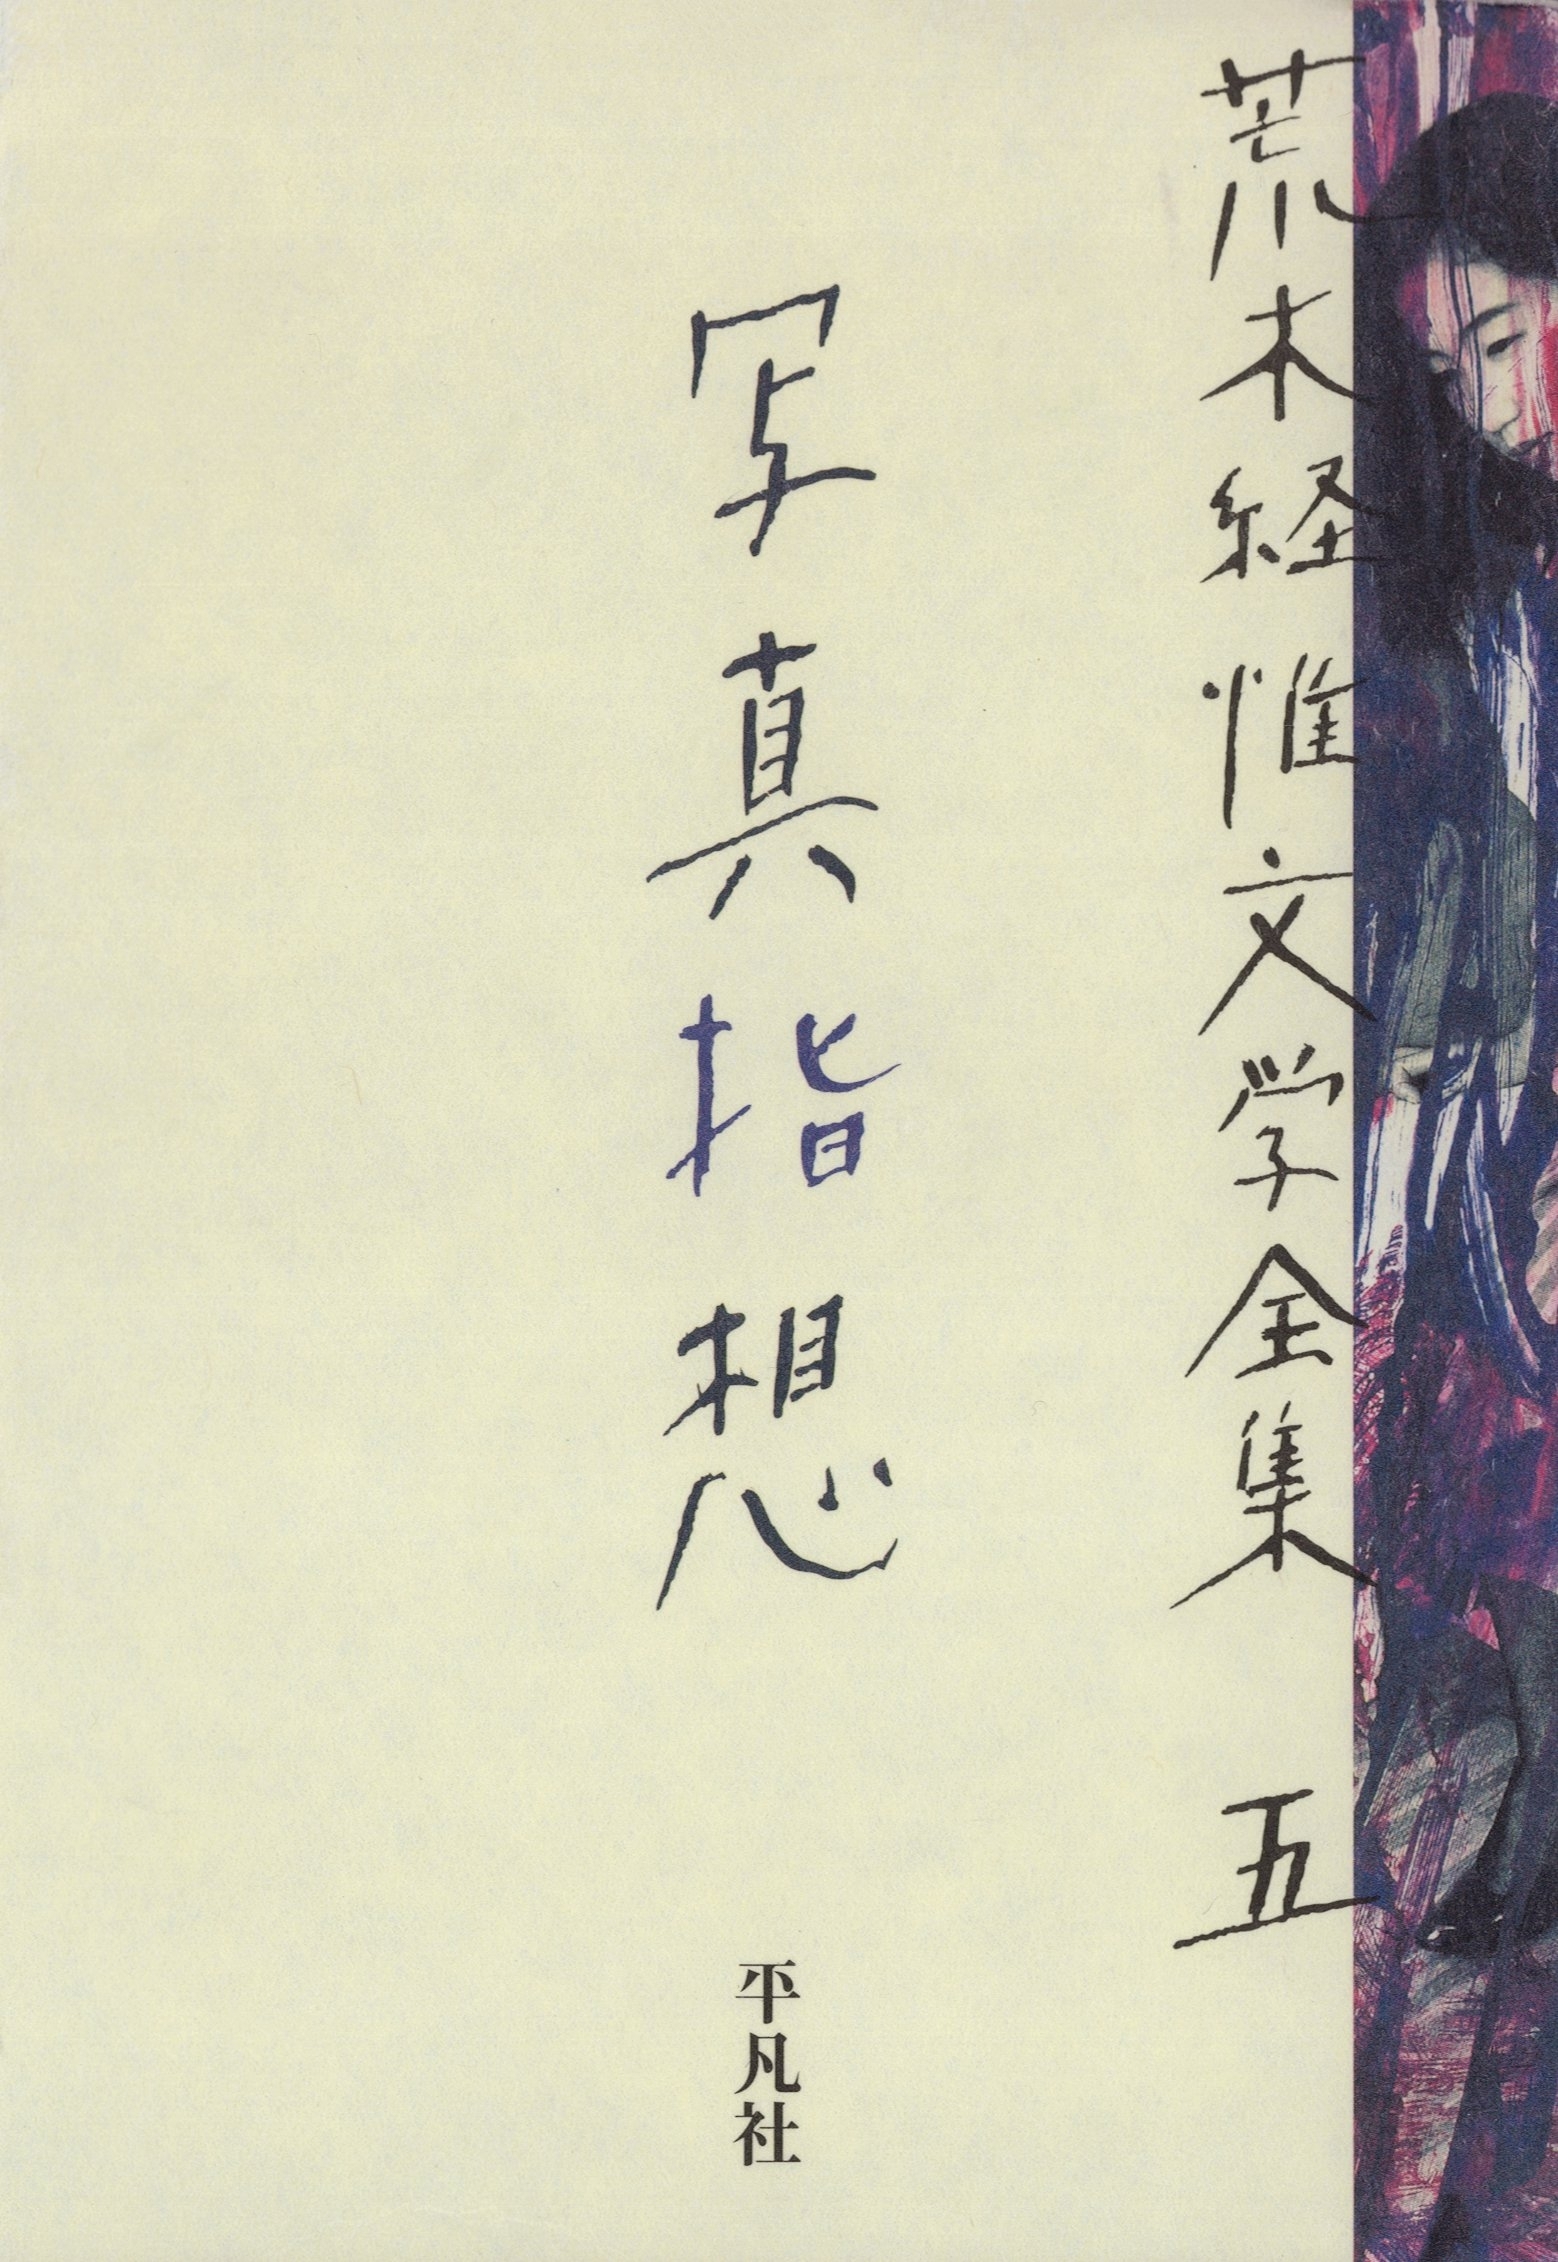 荒木経惟文学全集 五
写真指想
平凡社